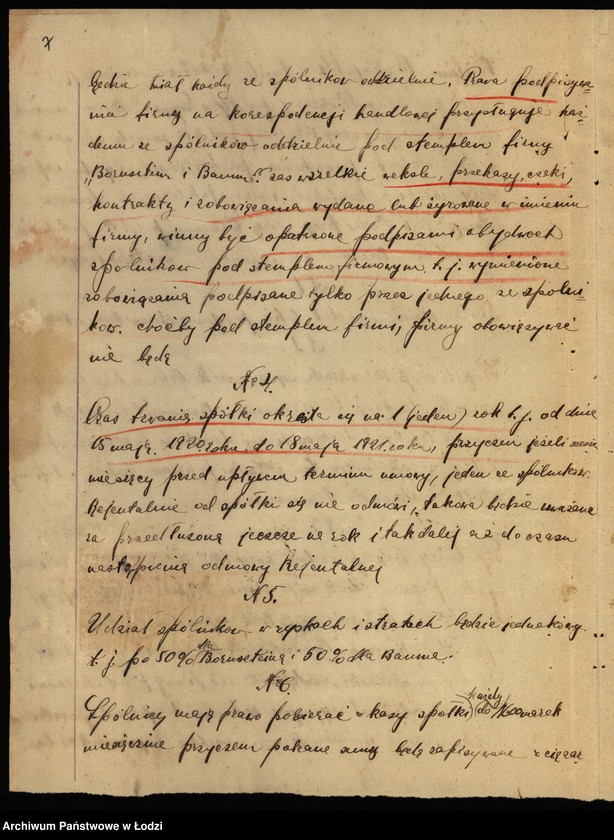 7
będzie miał każdy ze spólników oddzielnie. Prawa podpisywa-
nia firmy na korespodencji handlowej przysługuje każ-
demu ze spólników oddzielnie pod stemplem firmy
„Bornsztein i Baum", zaś wszelkie weksle, przekazy, czeki,
kontrakty i zobowiązania wydane lub żyrowane w imieniu
firmy, winny być opatrzone podpisami obydwóch
spólników pod stemplem firmowym t. j. wymienione
zobowiązania podpisane tylko przez jednego ze spólni-
ków. choćby pod stemplem firmy, firmy obowiązywać
nie będą
№ 4.
Czas trwania spółki określa się na 1 (jeden) rok t. j. od dnia
15 maja 1920 roku do 18 maja 1921 roku, przyczem jeżeli
miesięcy przed upływem terminu umowy, jeden ze spólników
Rejentalnie od spółki się nie odmówi, takowa będzie uważana
za przedłużoną jeszcze na rok i tak dalej aż do czasu
nastąpienia odmowy Rejentalnej
№ 5.
Udział spólników w zyskach i stratach będzie jednakowy
t. j. po 50% dla Bornszteina i 50% dla Bauma.
№ 6.
Spólnicy mają prawo pobierać z kasy spółki każdy do marek
miesięcznie przyczem pobrane sumy będą zapisywane w ciężar
Archiwum Państwowe w Łodzi